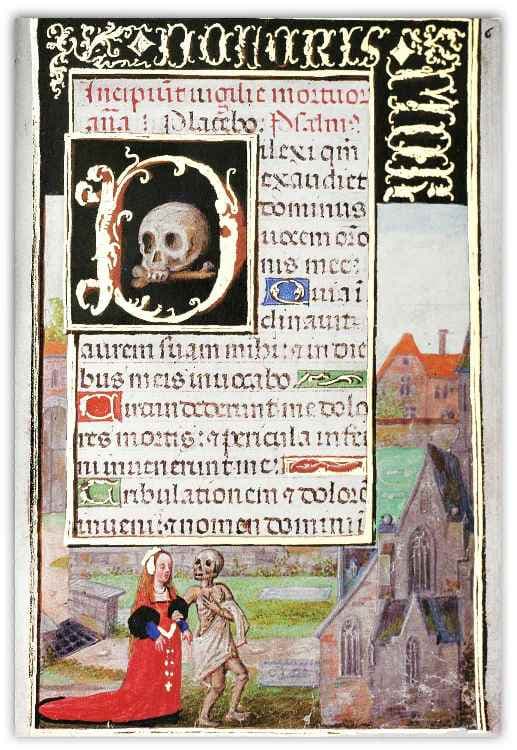 DOLORIS
6
Incipiūt uigilie mortuor
añа : Placebo: Psalmꝰ
Dilexi qm̄
exaudiet
dominus
uocem orō
nis mee:
Quia ī
clinauit
aurem suam mihi: ⁊ in die
bus meis inuocabo
Circundederunt me dolo
res mortis: ⁊ pericula infe
ni inuenerunt me:
Tribulationem ⁊ dolorē
inueni: ⁊ nomen domini ī